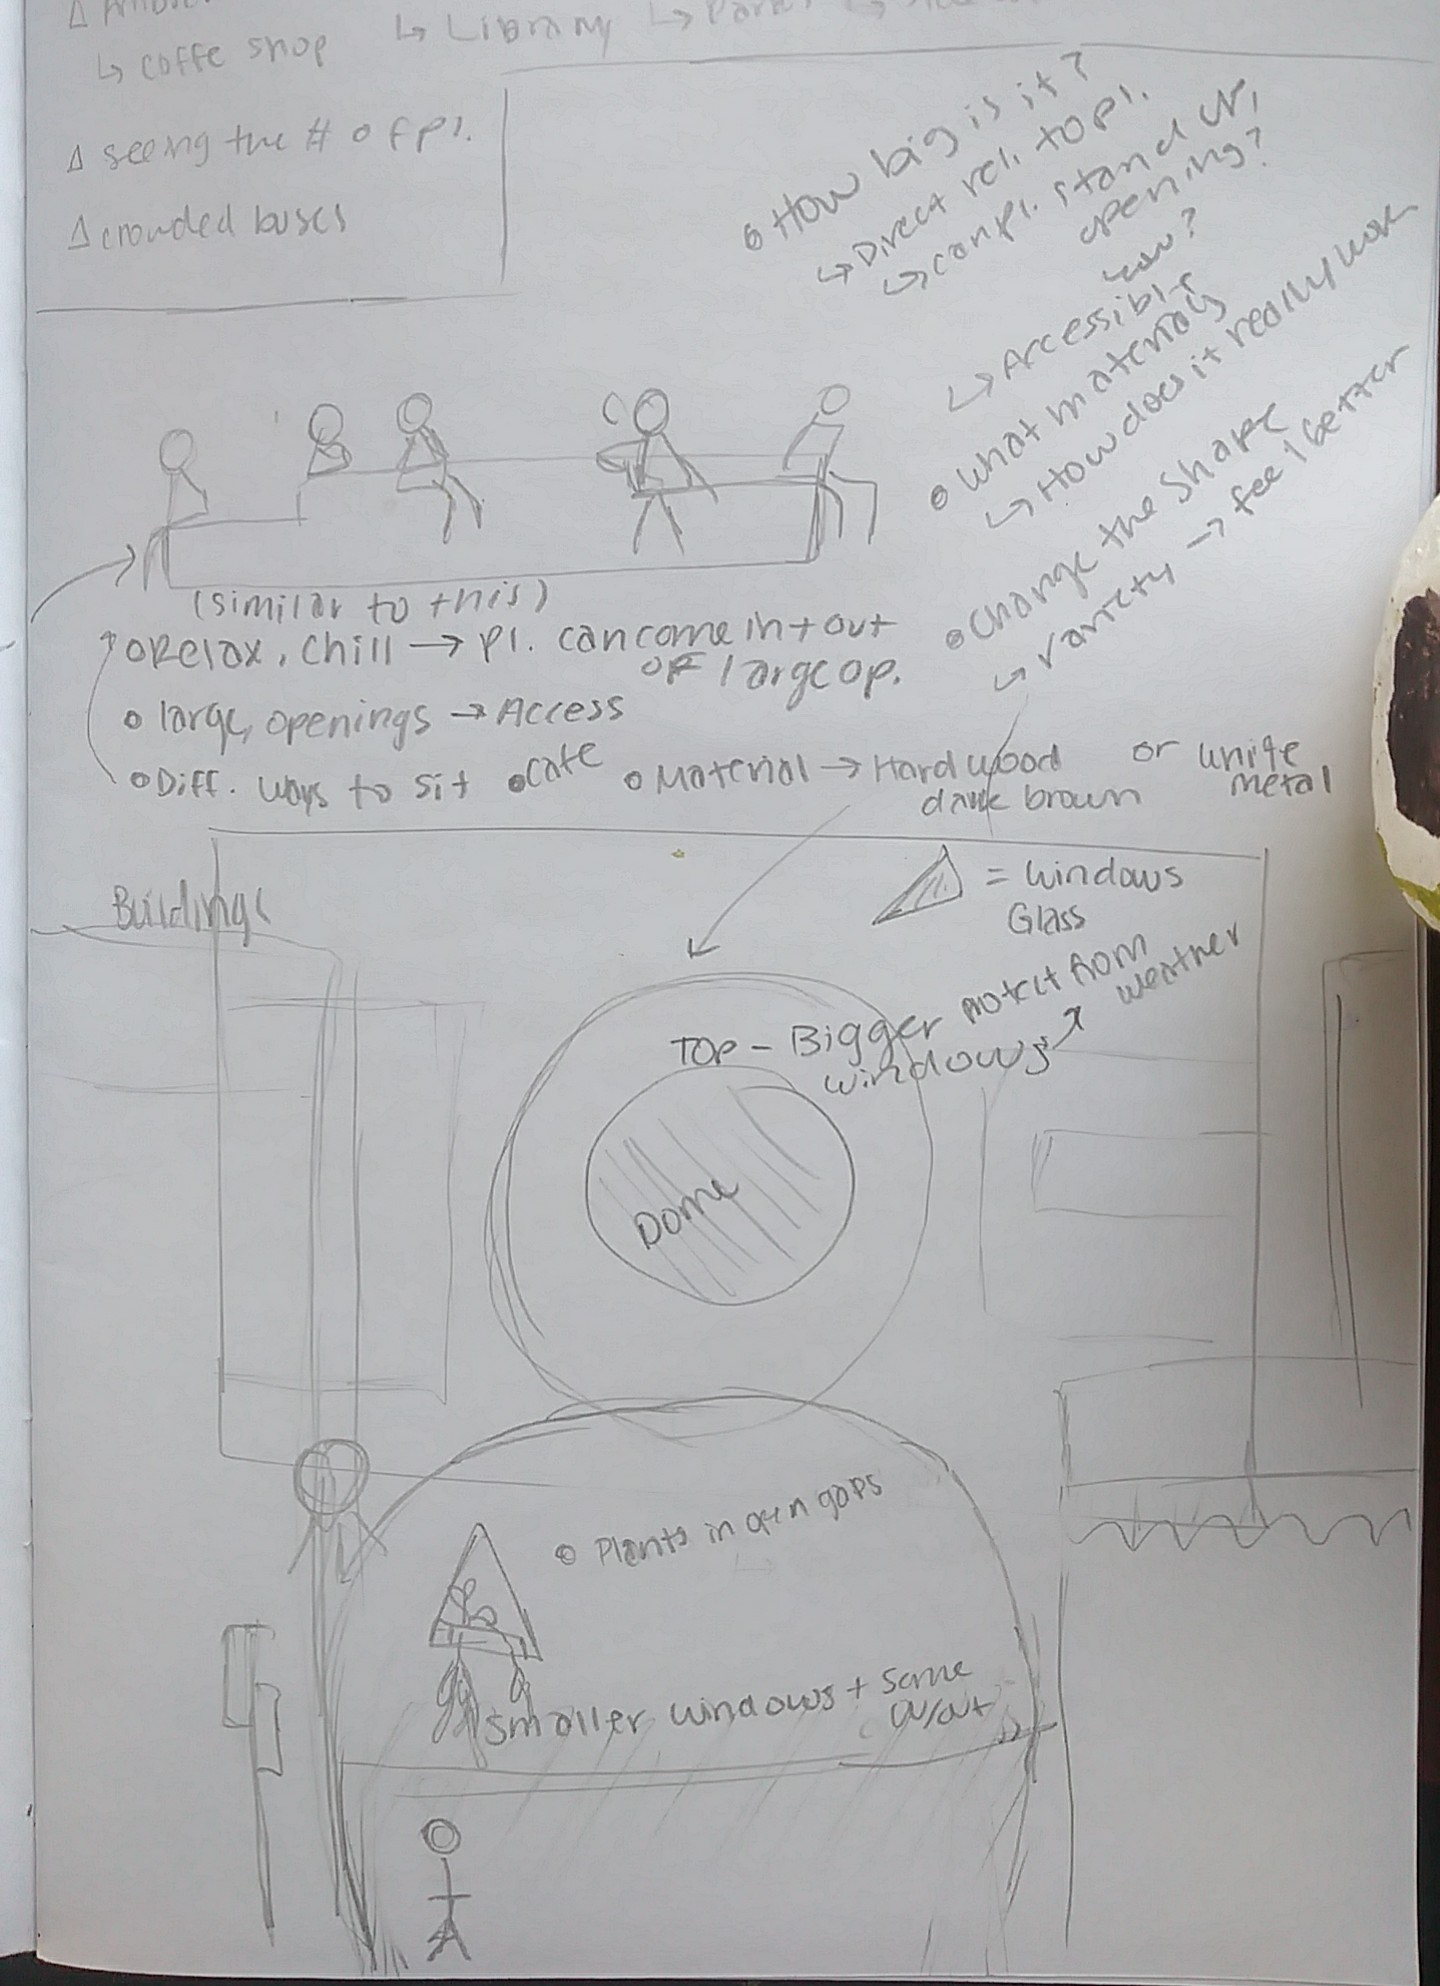 ↳ coffe shop ↳ Library ↳ Parks
Δ seeing the # of pl.
Δ crowded buses
• How big is it?
↳ Direct rel. to pl.
↳ can pl. stand up,
opening?
↳ Accessible
how?
• what materials
↳ How does it really work
• Change the shape
↳ variety → feel better
(similar to this)
• Relax, chill → Pl. can come in + out
of large op.
• large openings → Access
• Diff. ways to sit • cafe • Material → Hard wood or white
dark brown metal
Buildings
= windows
Glass
TOP - Bigger protect from
windows ↗ weather
Dome
• Plants in open gaps
smaller windows + some